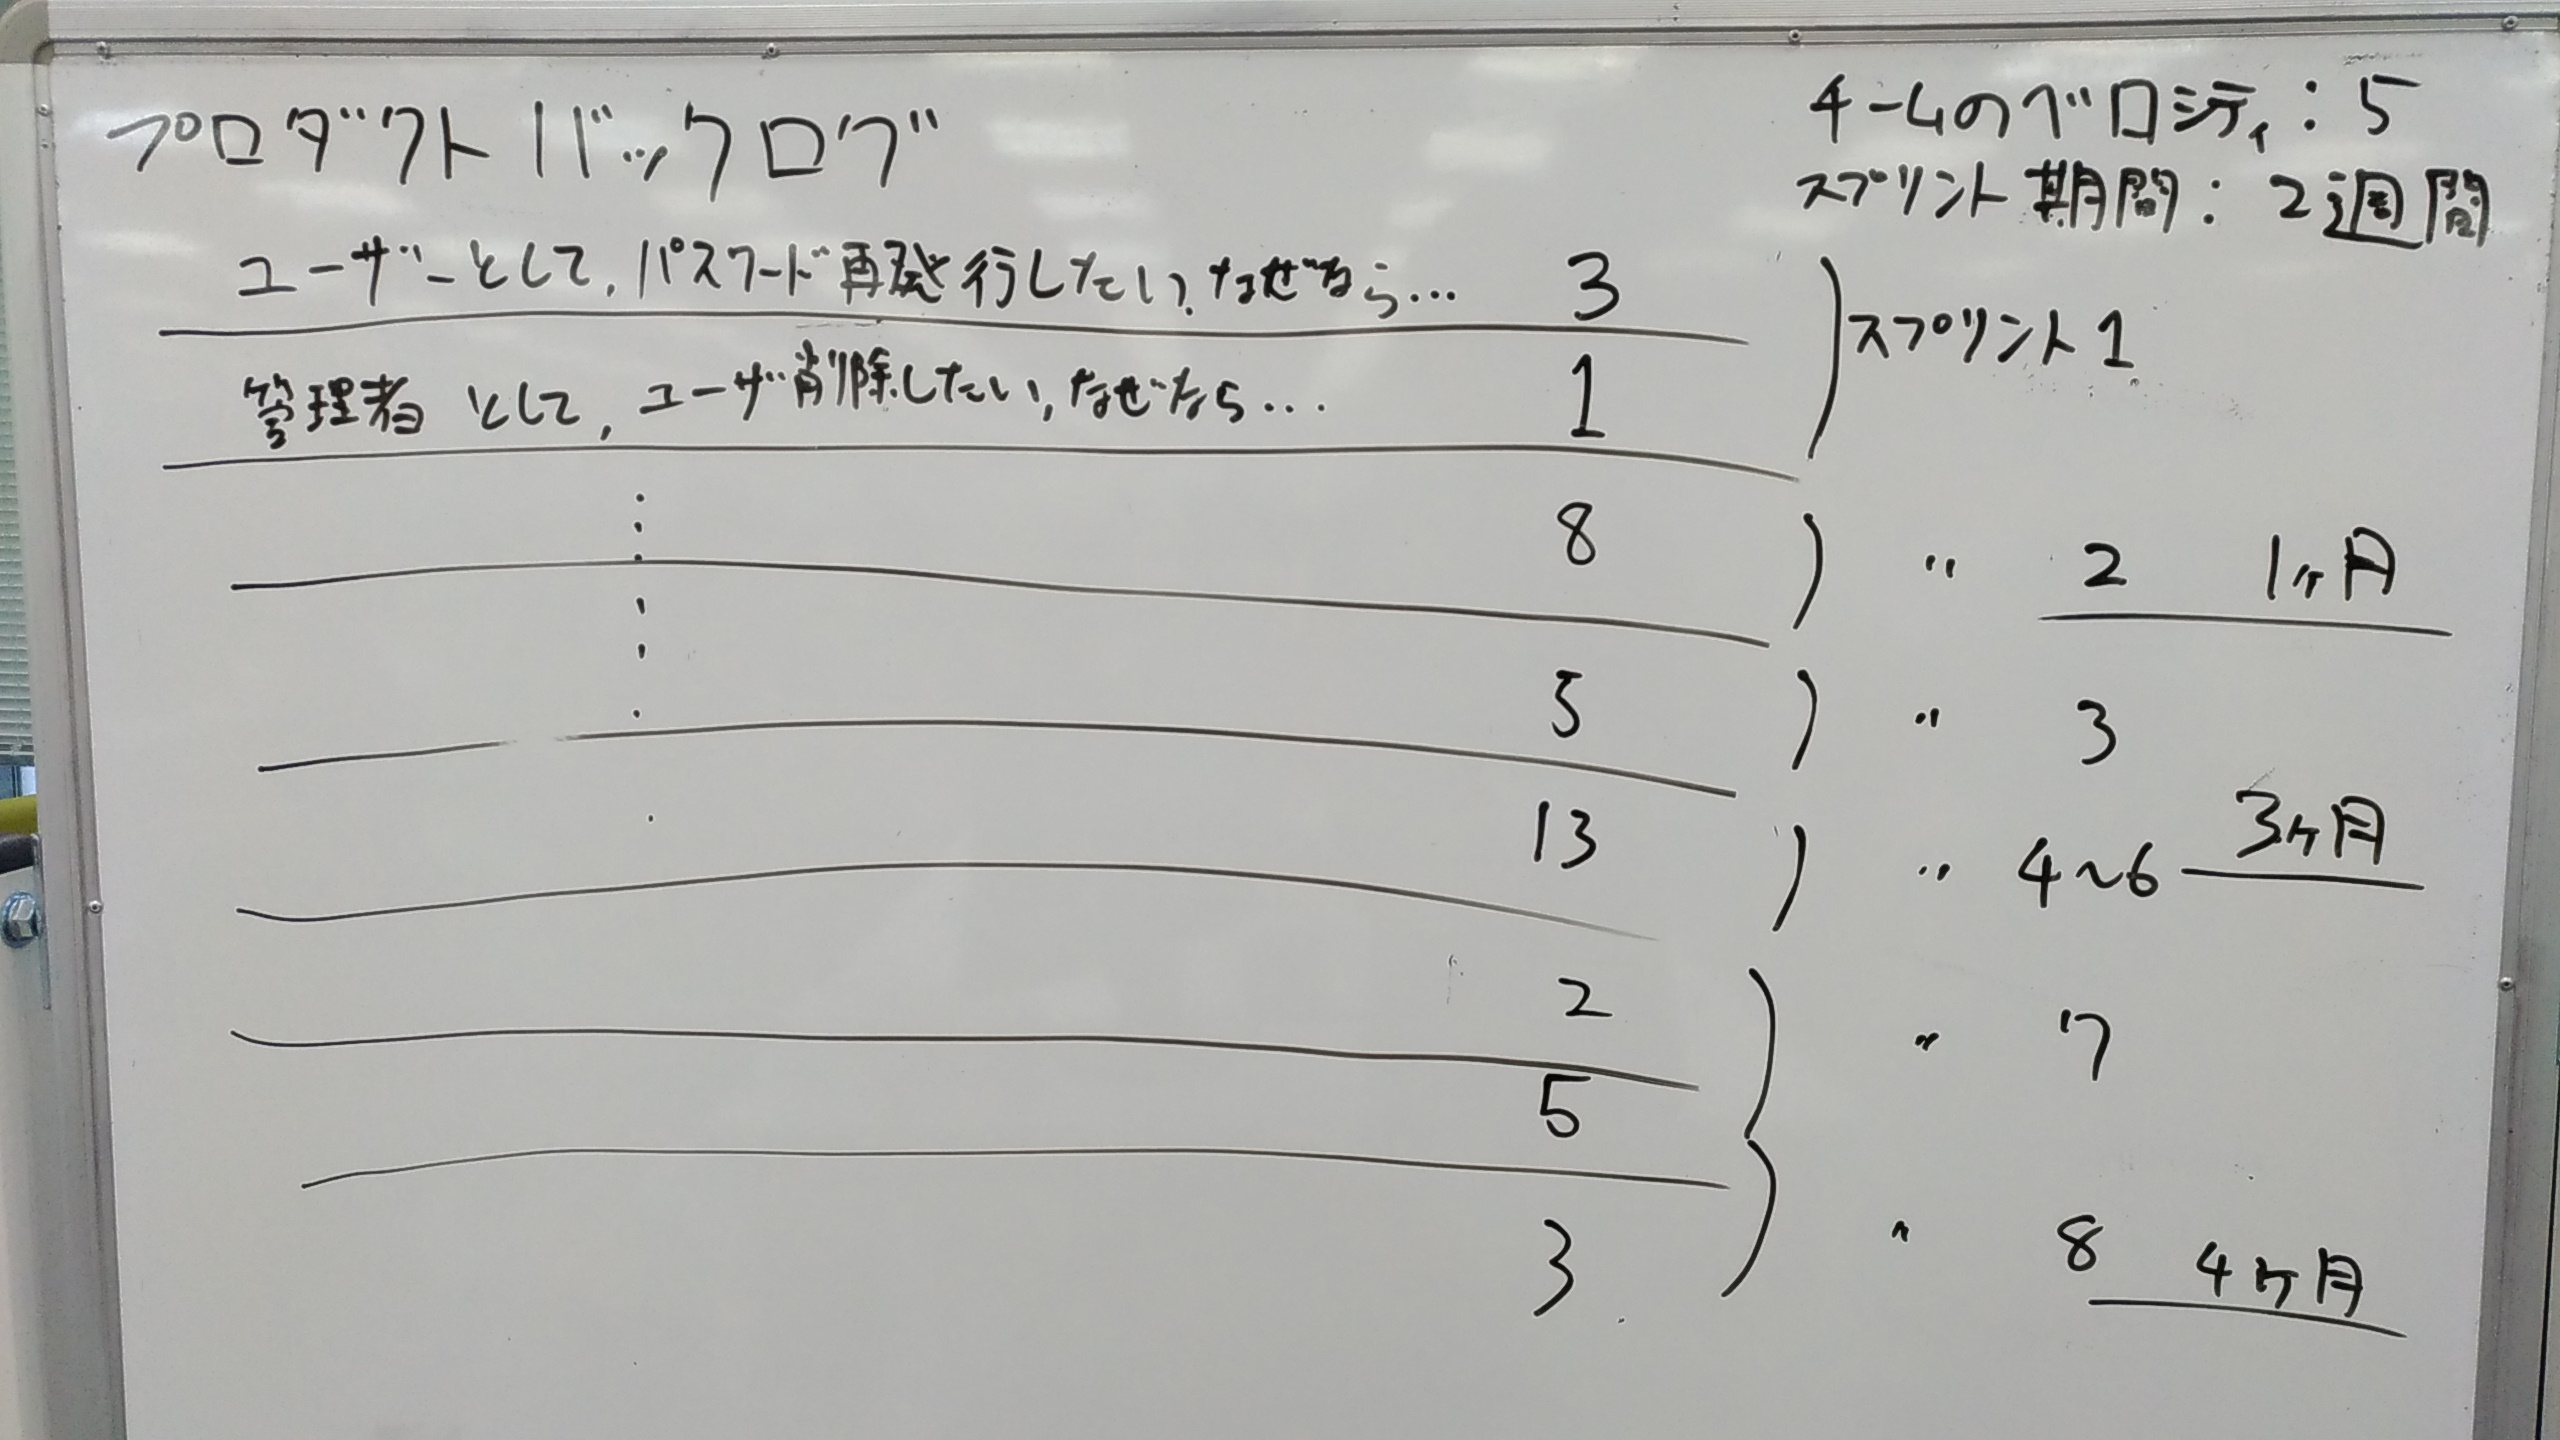 プロダクトバックログ
チームのベロシティ：5
スプリント期間：2週間
ユーザーとして，パスワード再発行したい，なぜなら… 3
スプリント1
管理者として，ユーザ削除したい，なぜなら… 1
8 〃 2 1ヶ月
5 〃 3
13 〃 4〜6 3ヶ月
2
〃 7
5
3 〃 8 4ヶ月